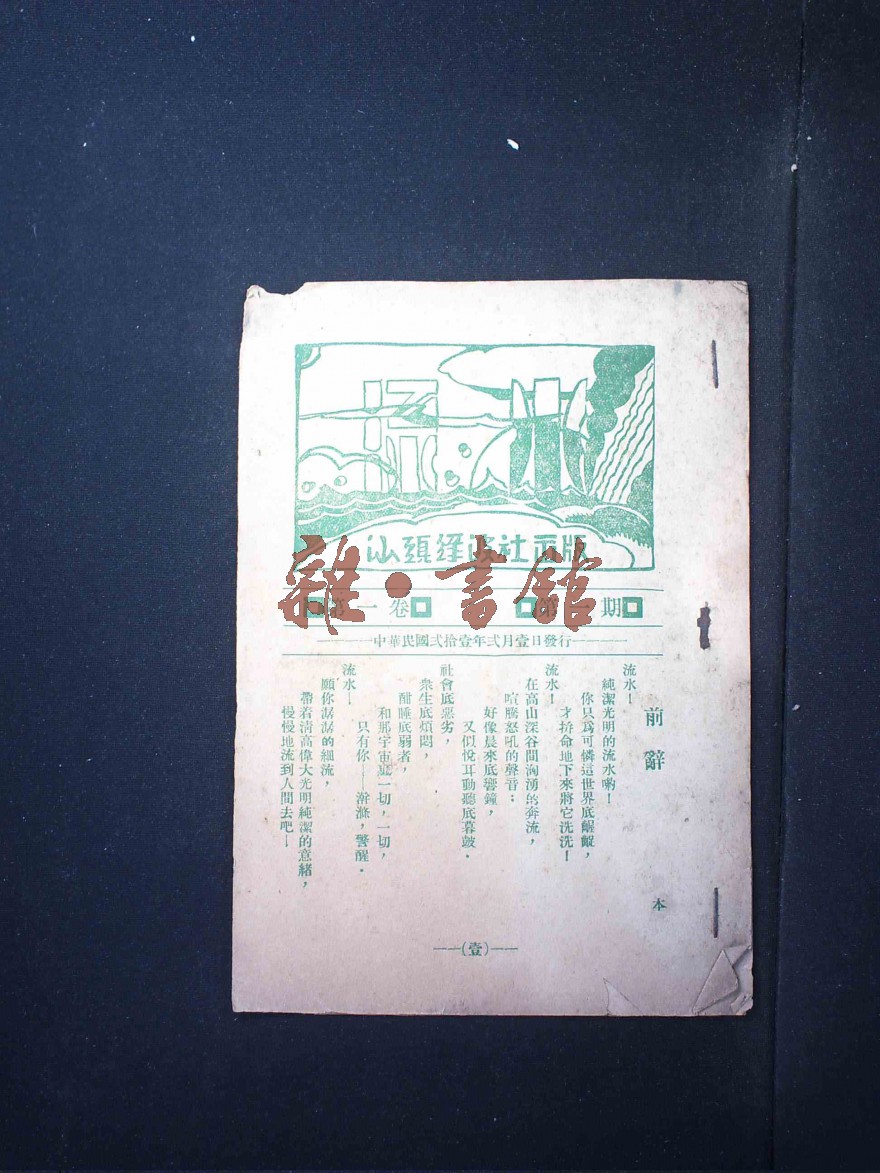 流水
汕頭
社出版
雜·書館
第一卷
第一期
中華民國弍拾壹年弍月壹日發行
前辭
本
流水！
純潔光明的流水喲！
你只為可憐這世界底齷齪，
才拚命地下來將它洗洗！
流水！
在高山深谷間洶湧的奔流，
喧騰怒吼的聲音：
好像晨來底響鐘，
又似悅耳動聽底暮皷．
社會底惡劣，
衆生底煩悶，
酣睡底弱者，
和那宇宙底一切，一切，
只有你——澣滌，警醒．
流水！
願你潺潺的細流，
帶着清高偉大光明純潔的意緒，
慢慢地流到人間去吧！
——(壹)——